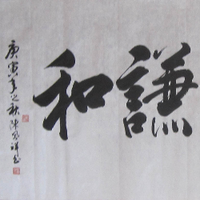 謙和
庚寅年之秋